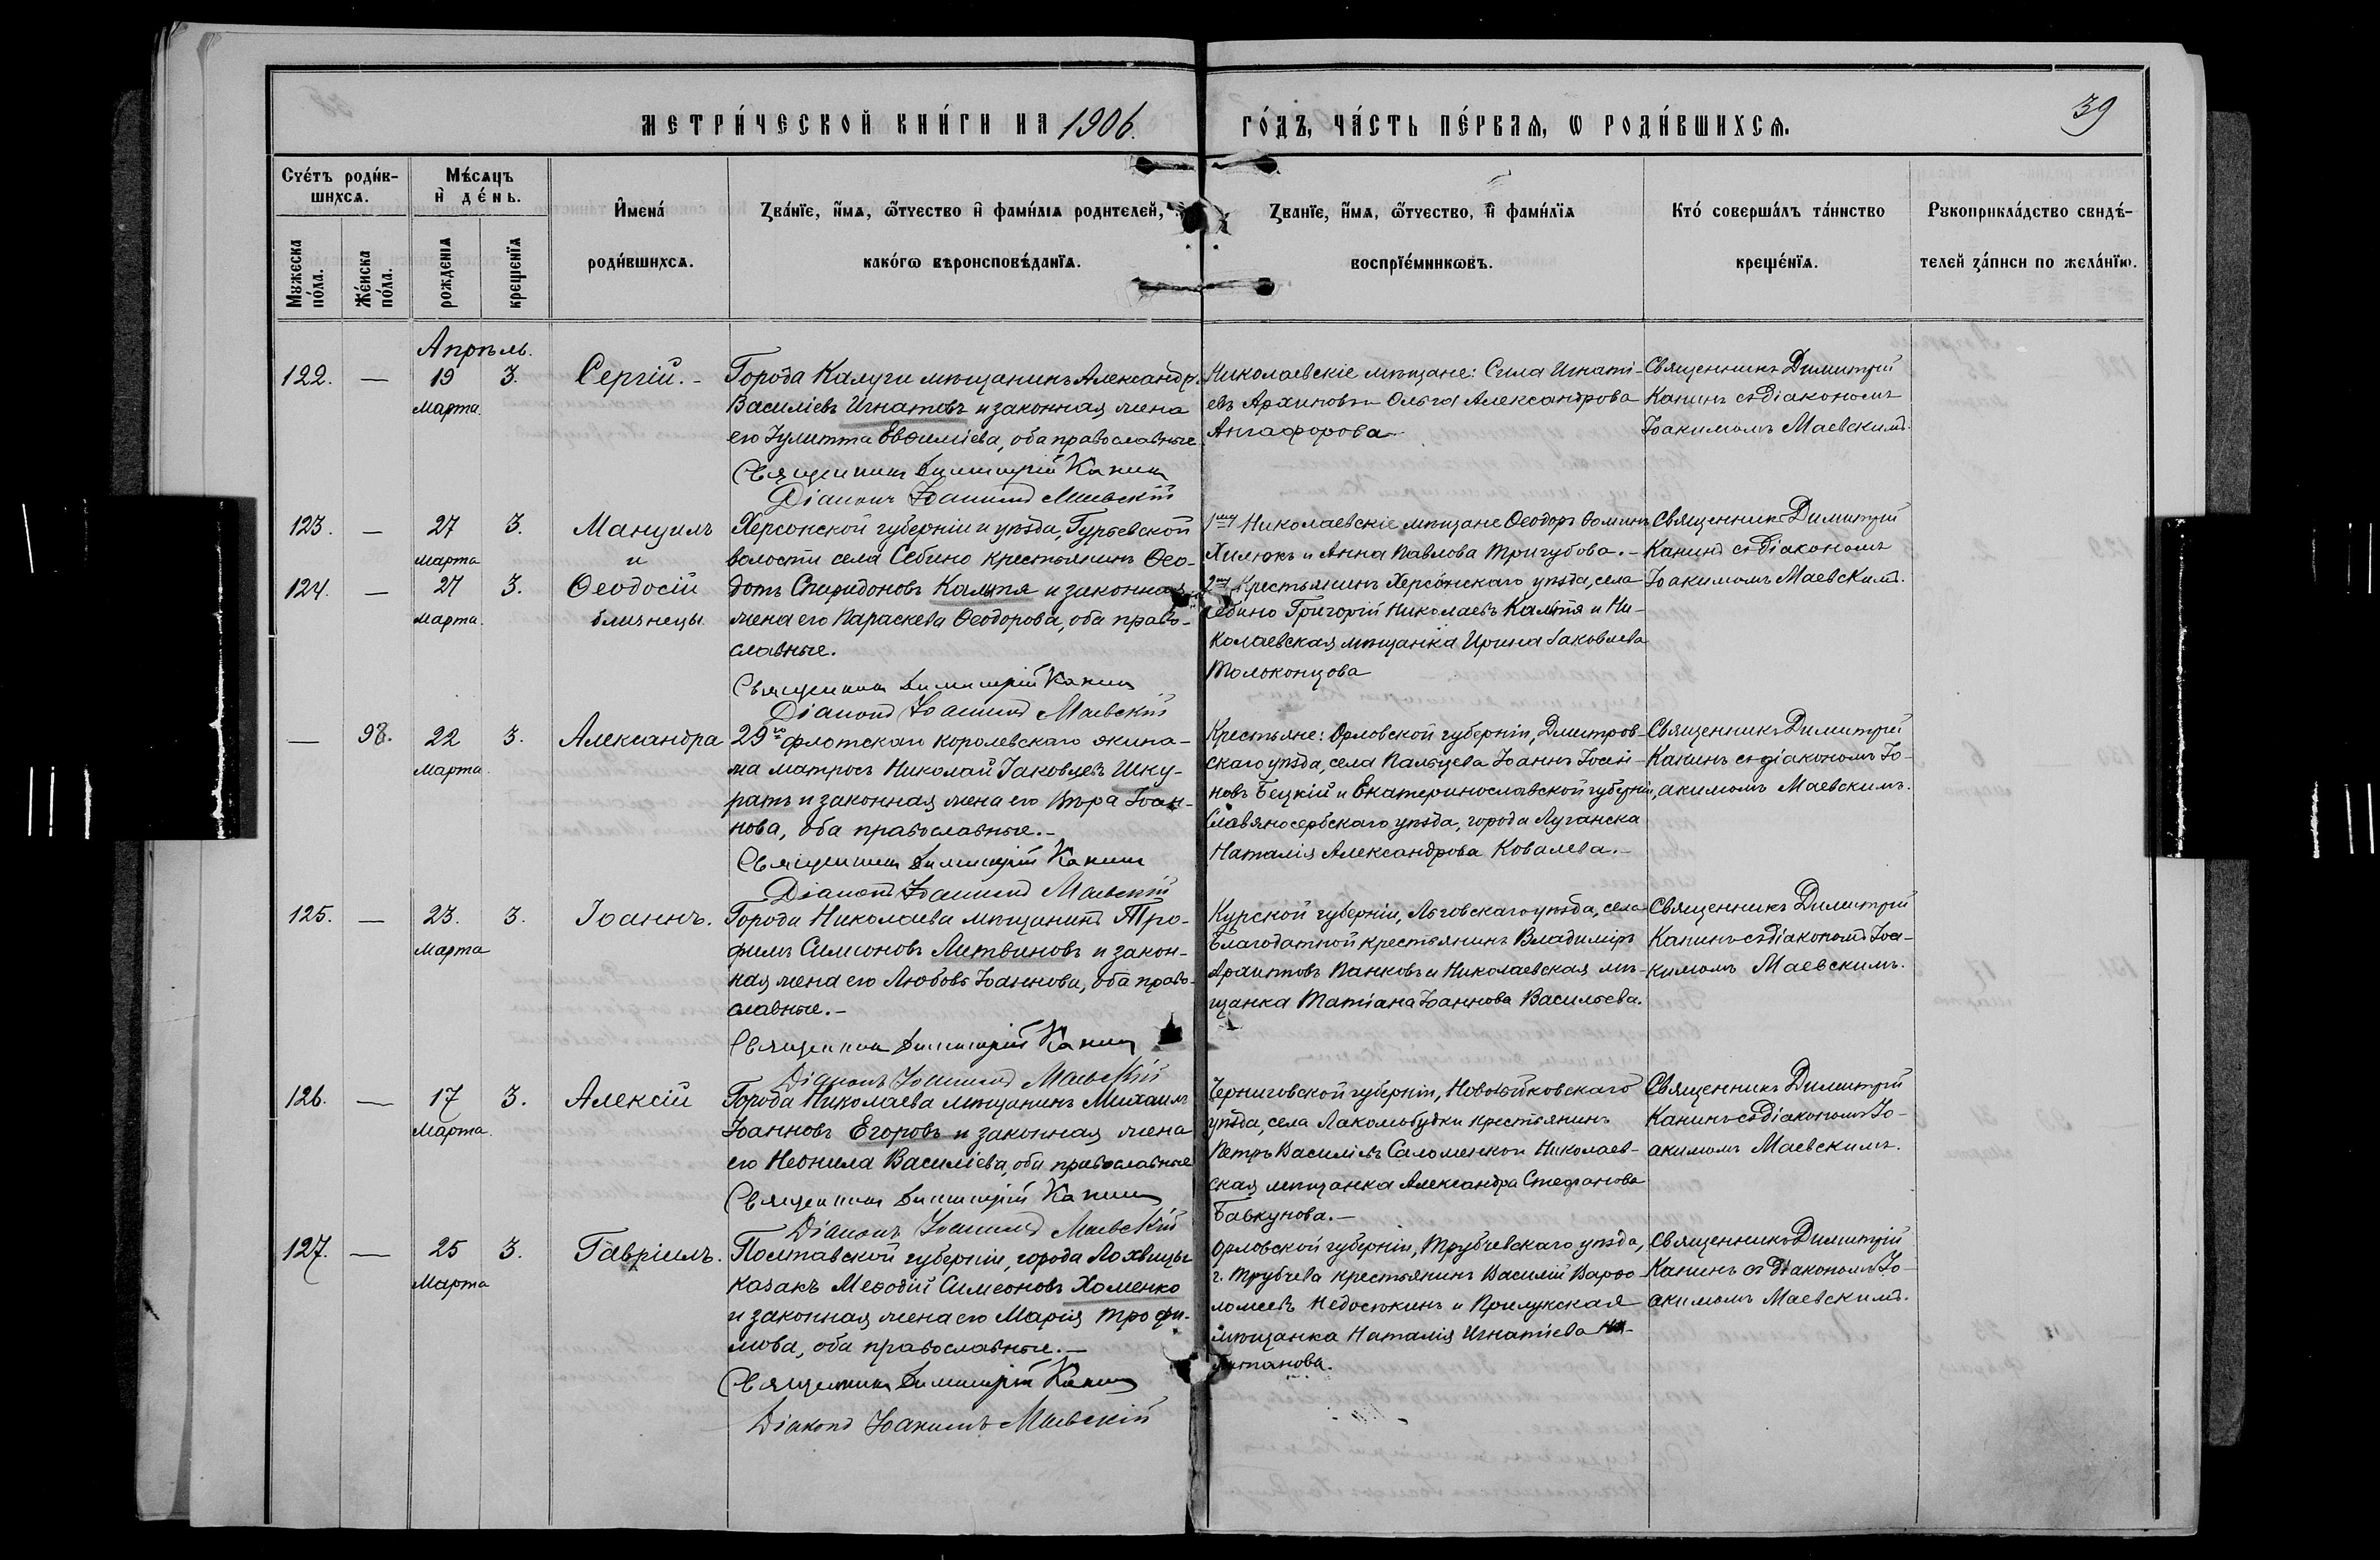 МЕТРИ́ЧЕСКОЙ КНИ́ГИ НА 1906. ГО́ДЪ, ЧА́СТЬ ПЕ́РВАѦ, Ѡ РОДИ́ВШИХСѦ.
39
Сче́тъ роди́в-
шихсѧ.
Мѣ́сѧцъ
и҆ де́нь.
Мꙋжеска
по́ла.
Же́нска
по́ла.
рожденїѧ
крещенїѧ
И҆мена́
роди́вшихсѧ.
Зва́нїе, и҆́мѧ, ѻ҆́тчество и҆ фами́лїѧ родителей,
како́гѡ вѣроисповѣ́данїѧ.
Зва́нїе, и҆́мѧ, ѻ҆́тчество, и҆ фами́лїѧ
воспрїе́мникѡвъ.
Кто́ соверша́лъ та́инство
креще́нїѧ.
Рꙋкоприкла́дство свидѣ́-
телей за́писи по жела́нїю.
Апрѣль.
122. — 19 3. Сергій. –
Марта.
Города Калуги мѣщанинъ Александр.
Василіевъ Игнатовъ и законная жена
его Іулитта Евѳиміева, оба православные
Священникъ Димитрій Канинъ
Діаконъ Іоакимъ Маевскій
Николаевскіе мѣщане: Сила Игнаті-
евъ Архиповъ и Ольга Александрова
Ангафорова
Священникъ Димитрій
Канинъ съ діакономъ
Іоакимомъ Маевскимъ.
123. — 27 3. Мануилъ
Марта и
124. — 27 3. Ѳеодосій
Марта. близнецы
Херсонской губерніи и уѣзда, Гурьевской
волости села Себино крестьянинъ Ѳео-
дотъ Спиридоновъ Калытя и законная
жена его Параскева Ѳеодорова, оба право-
славные.
Священникъ Димитрій Канинъ
Діаконъ Іоакимъ Маевскій
1му Николаевскіе мѣщане Ѳеодоръ Ѳоминъ
Хилюкъ и Анна Павлова Тригубова. –
2му Крестьянинъ Херсонскаго уѣзда, села
Себино Григорій Николаевъ Калытя и Ни-
колаевская мѣщанка Ирина Іаковлева
Толоконцова
Священникъ Димитрій
Канинъ съ діакономъ
Іоакимомъ Маевскимъ.
— 98. 22 3. Александра
Марта.
29го флотскаго королевскаго экипа-
жа матросъ Николай Іаковлевъ Шку-
ратъ и законная жена его Вѣра Іоан-
нова, оба православные. –
Священникъ Димитрій Канинъ
Діаконъ Іоакимъ Маевскій
Крестьяне: Орловской губерніи, Дмитров-
скаго уѣзда, села Пальцева Іоаннъ Іоан-
новъ Бецкій и Екатеринославской губерніи,
Славяносербскаго уѣзда, города Луганска
Наталія Александрова Ковалева. –
Священникъ Димитрій
Канинъ съ діакономъ Іо-
акимомъ Маевскимъ.
125. — 23. 3. Іоаннъ.
Марта
Города Николаева мѣщанинъ Тро-
фимъ Симеоновъ Литвиновъ и закон-
ная жена его Любовь Іоаннова, оба право-
славные. –
Священникъ Димитрій Канинъ
Діаконъ Іоакимъ Маевскій
Курской губерніи, Льговскаго уѣзда, села
Благодатной крестьянинъ Владиміръ
Архиповъ Панковъ и Николаевская мѣ-
щанка Татіана Іоаннова Васильева.
Священникъ Димитрій
Канинъ съ діакономъ Іоа-
кимомъ Маевскимъ.
126. — 17 3. Алексій
Марта.
Города Николаева мѣщанинъ Михаилъ
Іоанновъ Егоровъ и законная жена
его Неонила Василіева, оба православные
Священникъ Димитрій Канинъ
Діаконъ Іоакимъ Маевскій
Черниговской губерніи, Новозыбковскаго
уѣзда, села Лакомобудки крестьянинъ
Петръ Василіевъ Саломенко и Николаев-
ская мѣщанка Александра Стефанова
Бавкунова. –
Священникъ Димитрій
Канинъ съ діакономъ Іо-
акимомъ Маевскимъ.
127. — 25 3. Гавріилъ.
Марта
Полтавской губерніи, города Лохвицы
казакъ Меѳодій Симеоновъ Хоменко
и законная жена его Марія Трофи-
мова, оба православные. –
Священникъ Димитрій Канинъ
Діаконъ Іоакимъ Маевскій
Орловской губерніи, Трубчевскаго уѣзда,
г. Трубчева крестьянинъ Василій Варѳо-
ломеевъ Недосѣкинъ и Прилукская
мѣщанка Наталія Игнатіева
Священникъ Димитрій
Канинъ съ діакономъ Іо-
акимомъ Маевскимъ.